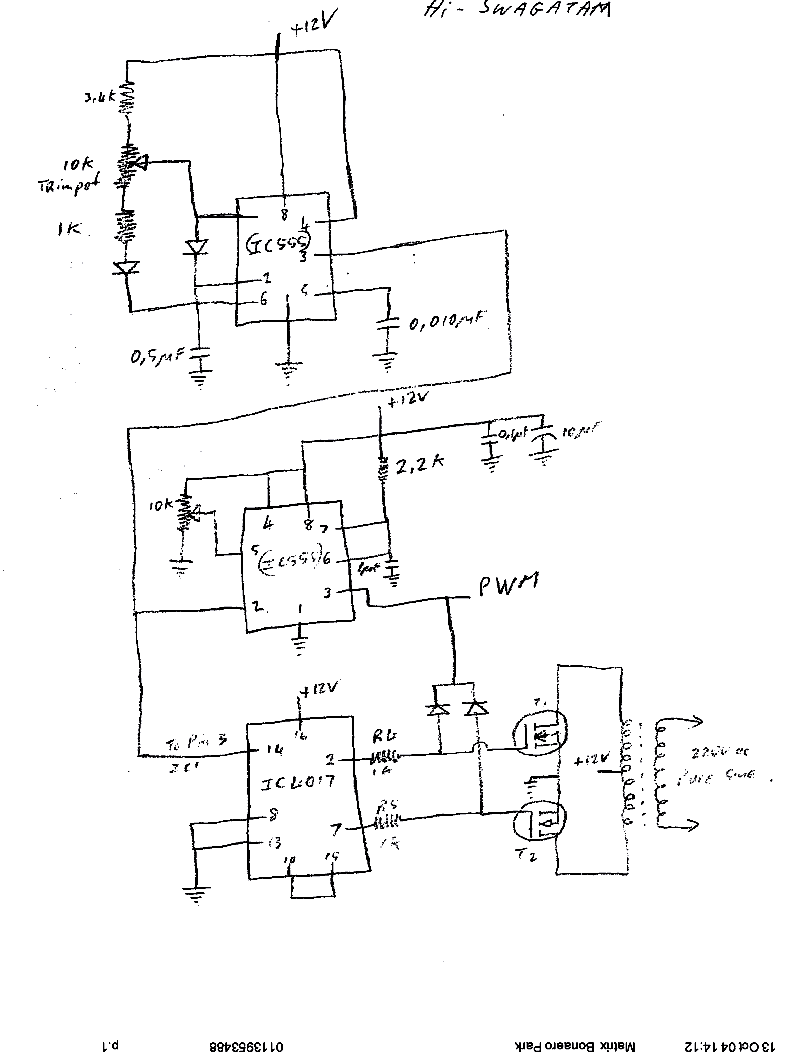 Hi - SWAGATAM
+12V
3,4K
10K
TRimpot
1K
8
4
(IC555)
3
2
6
1
5
0,5µF
0,010µF
+12V
0,1µF
10µF
2,2K
10K
4
8
7
5
(IC555)
6
2
1
3
PWM
+12V
16
To Pin 3
IC1
14
2
R4
1K
IC4017
8
7
R5
1K
13
10
15
T1
+12V
T2
220V ac
Pure Sine.
13 Oct 04 14:12
Matrix Bonaero Park
0113953468
p.1